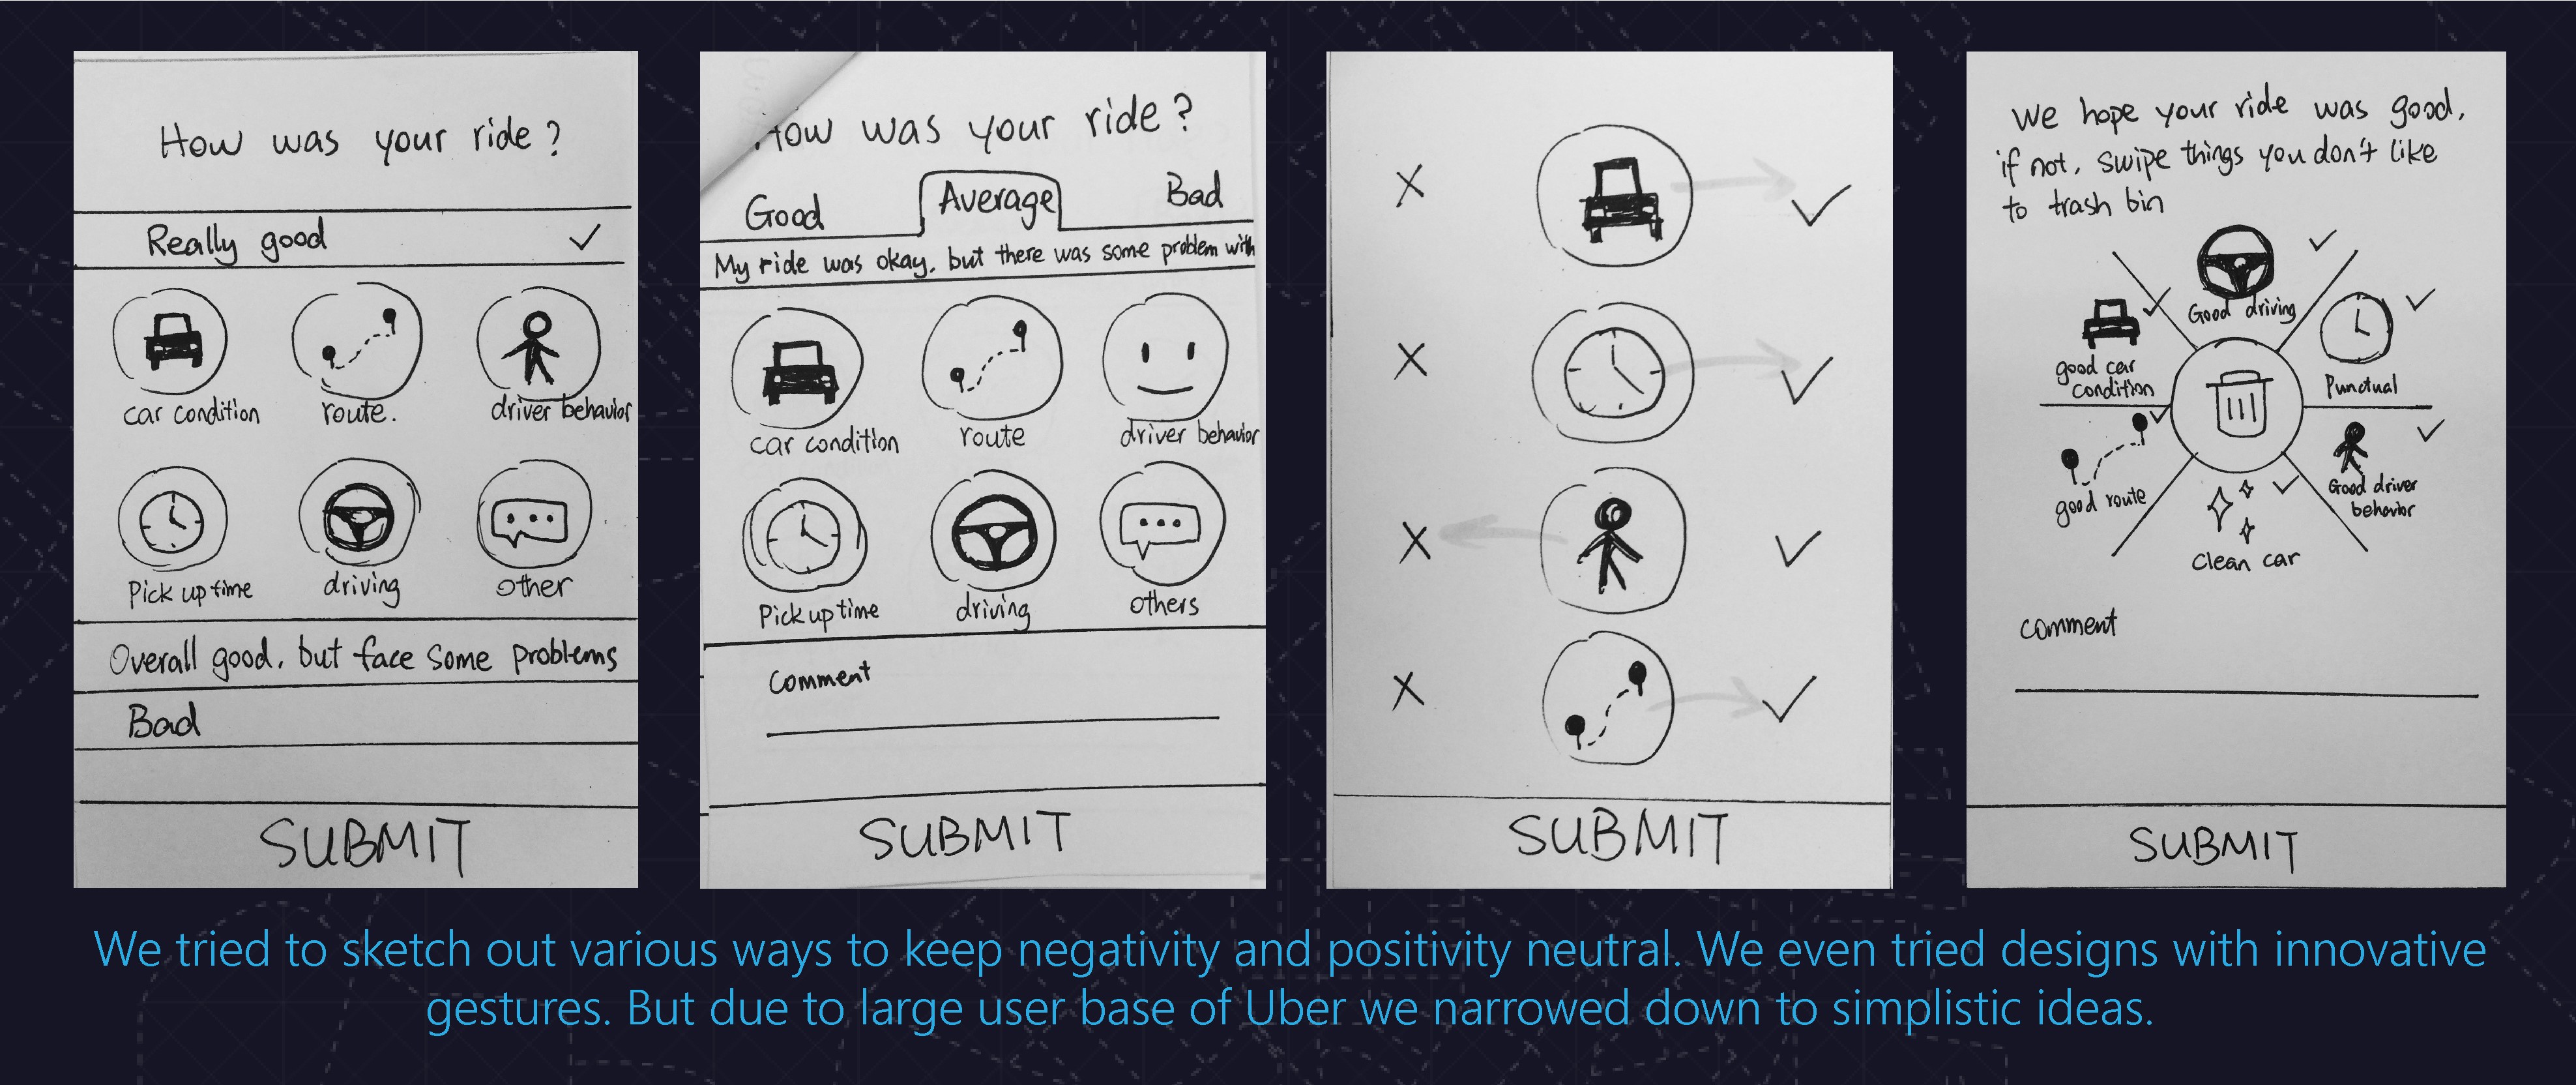 How was your ride?
Really good
car condition
route.
driver behavior
Pick up time
driving
other
Overall good, but face some problems
Bad
SUBMIT
How was your ride?
Good
Average
Bad
My ride was okay, but there was some problem with
car condition
route
driver behavior
Pick up time
driving
others
comment
SUBMIT
SUBMIT
We hope your ride was good,
if not, swipe things you don't like
to trash bin
Good driving
good car
condition
Punctual
good route
Good driver
behavior
Clean car
comment
SUBMIT
We tried to sketch out various ways to keep negativity and positivity neutral. We even tried designs with innovative
gestures. But due to large user base of Uber we narrowed down to simplistic ideas.